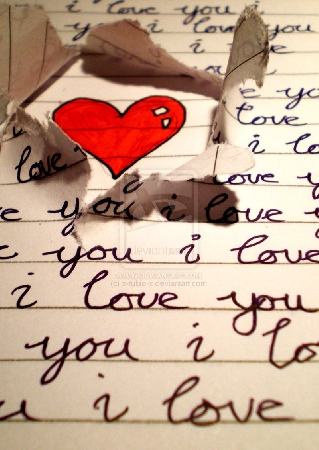 i love you i
i love you
you i
e you
love
i love
love i
love y
e you i love y
c you i love
deviantART
i love you
you i lo
u i love